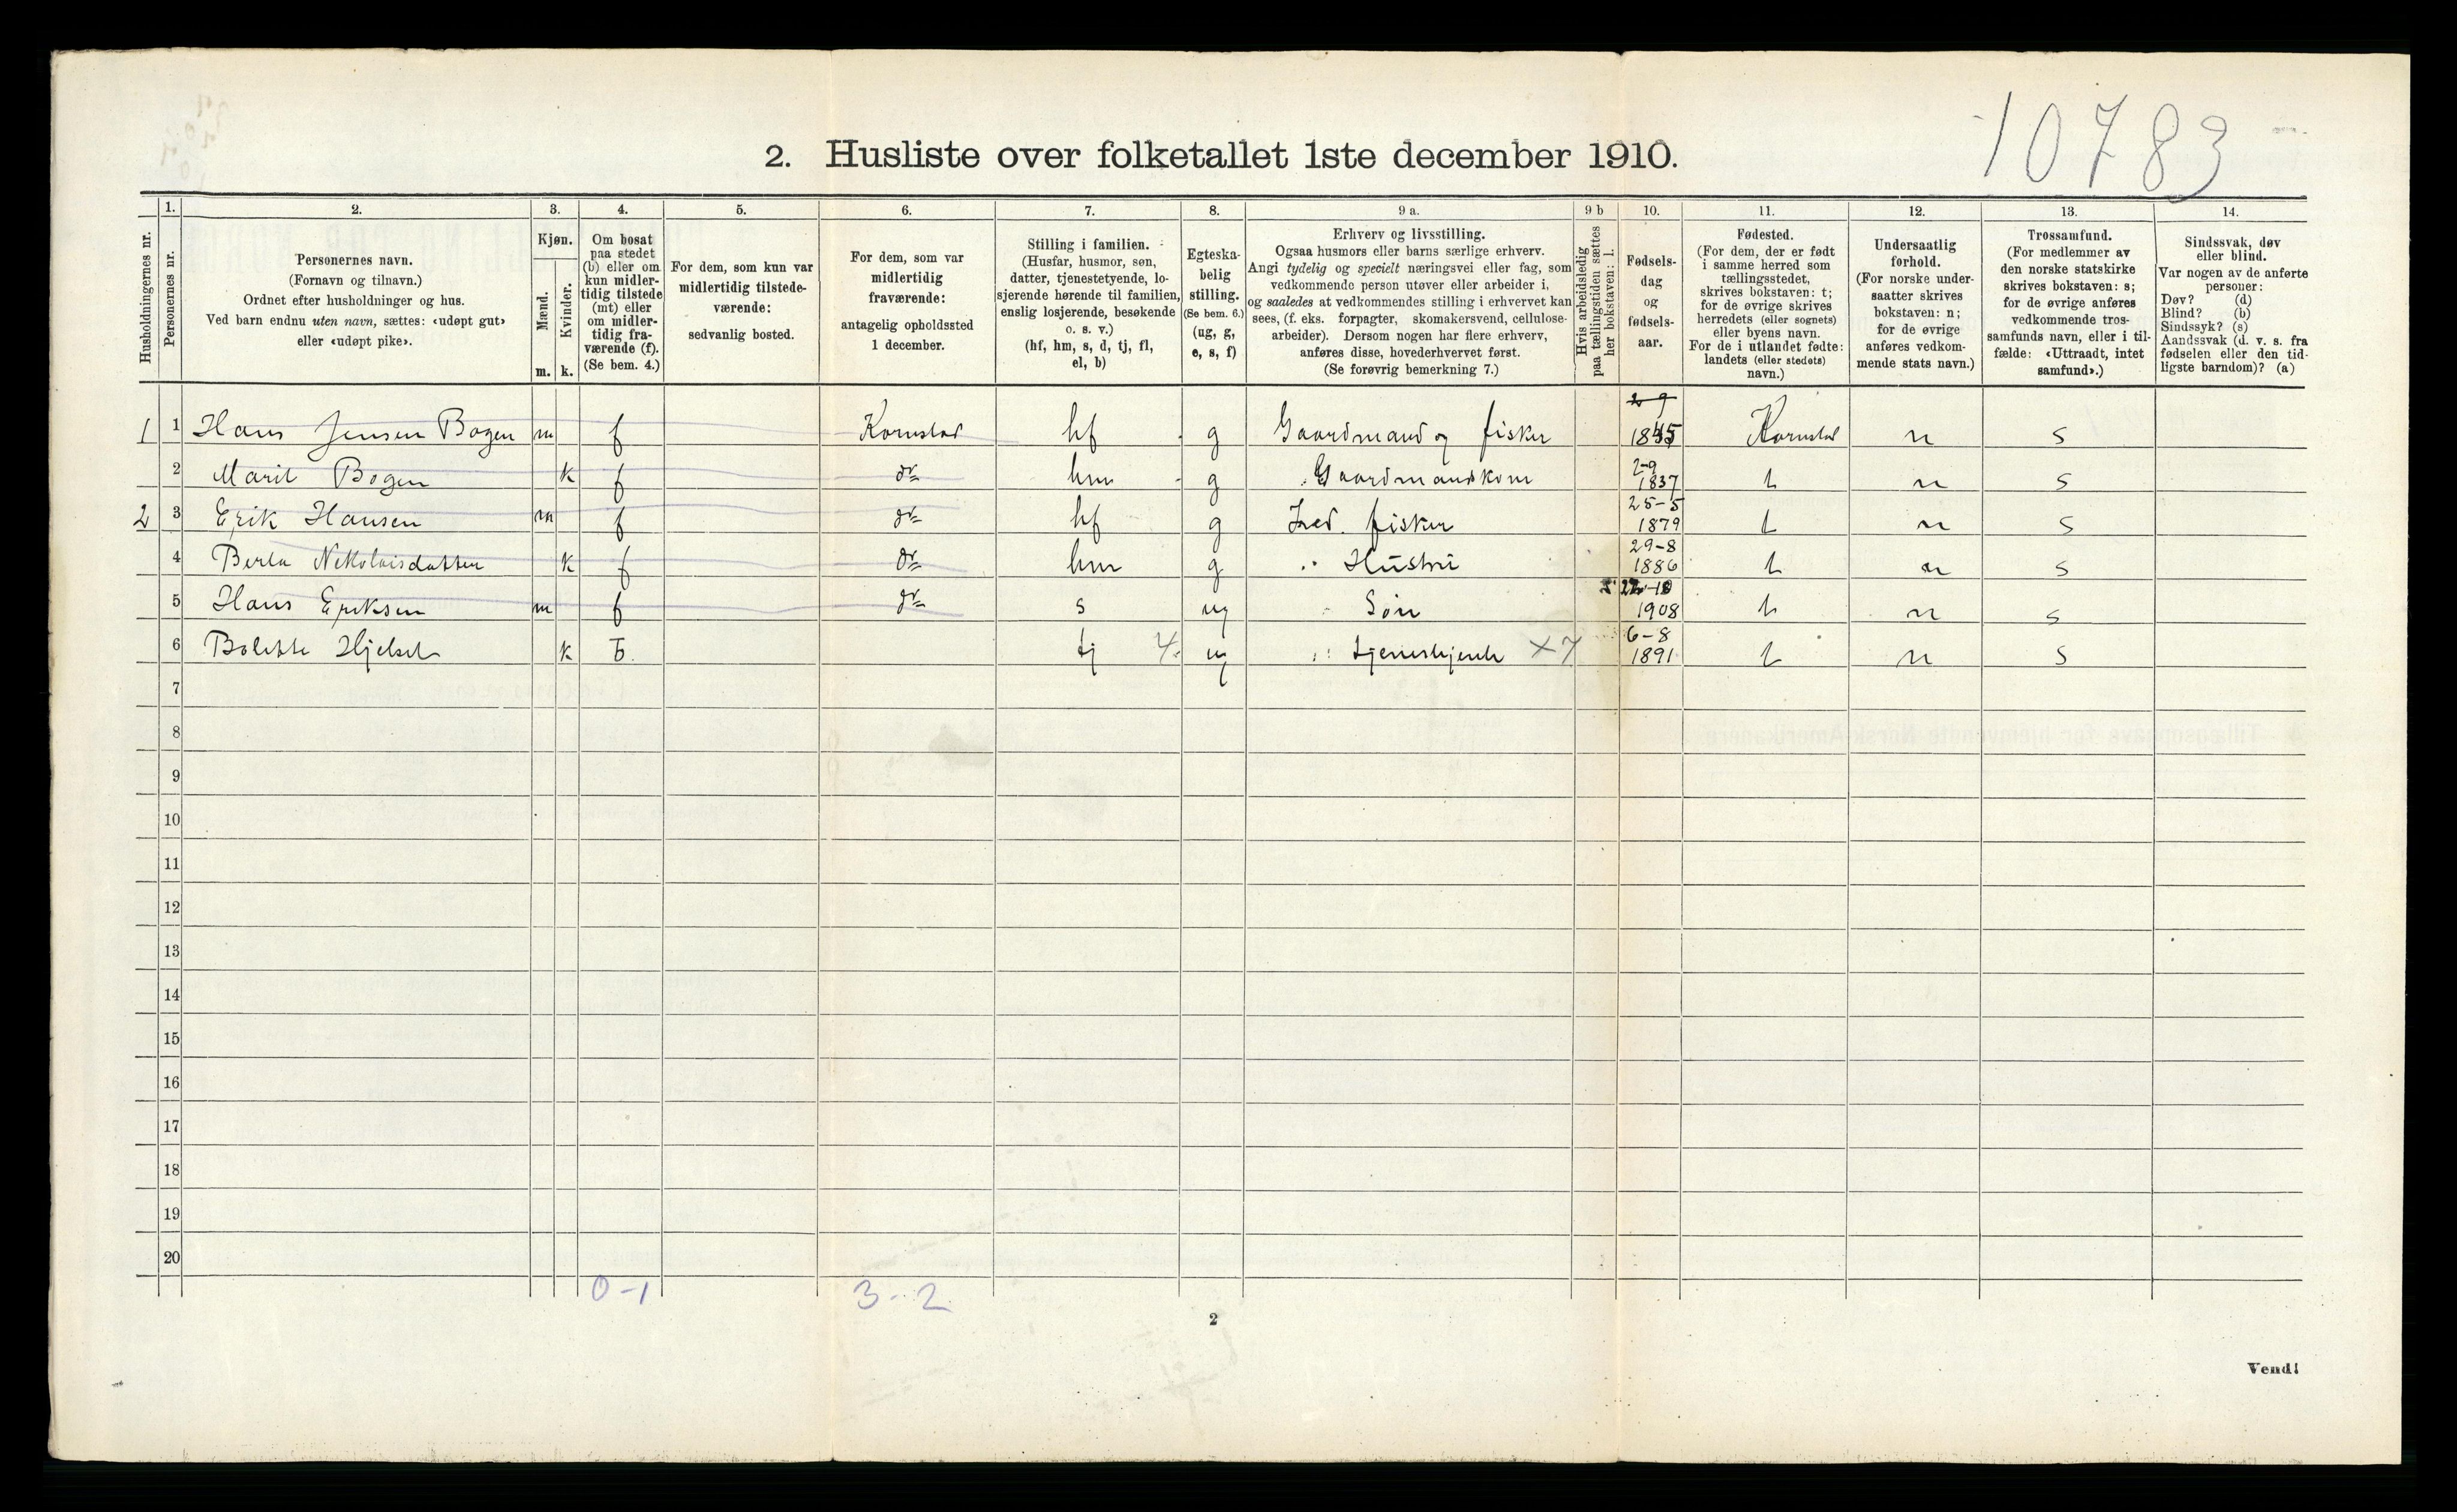 10783
2. Husliste over folketallet 1ste december 1910.
Husholdningernes nr.
1. Personernes nr.
2. Personernes navn. (Fornavn og tilnavn.) Ordnet efter husholdninger og hus. Ved barn endnu uten navn, sættes: «udøpt gut» eller «udøpt pike».
3. Kjøn. Mænd. m. Kvinder. k.
4. Om bosat paa stedet (b) eller om kun midlertidig tilstede (mt) eller om midlertidig fraværende (f). (Se bem. 4.)
5. For dem, som kun var midlertidig tilstedeværende: sedvanlig bosted.
6. For dem, som var midlertidig fraværende: antagelig opholdssted 1 december.
7. Stilling i familien. (Husfar, husmor, søn, datter, tjenestetyende, losjerende hørende til familien, enslig losjerende, besøkende o. s. v.) (hf, hm, s, d, tj, fl, el, b)
8. Egteskabelig stilling. (Se bem. 6.) (ug, g, e, s, f)
9 a. Erhverv og livsstilling. Ogsaa husmors eller barns særlige erhverv. Angi tydelig og specielt næringsvei eller fag, som vedkommende person utøver eller arbeider i, og saaledes at vedkommendes stilling i erhvervet kan sees, (f. eks. forpagter, skomakersvend, cellulosearbeider). Dersom nogen har flere erhverv, anføres disse, hovederhvervet først. (Se forøvrig bemerkning 7.)
9 b Hvis arbeidsledig paa tællingstiden sættes her bokstaven: l.
10. Fødselsdag og fødselsaar.
11. Fødested. (For dem, der er født i samme herred som tællingsstedet, skrives bokstaven: t; for de øvrige skrives herredets (eller sognets) eller byens navn. For de i utlandet fødte: landets (eller stedets) navn.)
12. Undersaatlig forhold. (For norske undersaatter skrives bokstaven: n; for de øvrige anføres vedkommende stats navn.)
13. Trossamfund. (For medlemmer av den norske statskirke skrives bokstaven: s; for de øvrige anføres vedkommende trossamfunds navn, eller i tilfælde: «Uttraadt, intet samfund».)
14. Sindssvak, døv eller blind. Var nogen av de anførte personer: Døv? (d) Blind? (b) Sindssyk? (s) Aandssvak (d. v. s. fra fødselen eller den tidligste barndom)? (a)
1 1 Hans Jensen Bogen m f Kornstad hf g Gaardmand og fisker 2-9 1845 Kornstad n s
2 Marit Bogen k f do hm g Gaardmandskone 2-9 1837 t n s
2 3 Erik Hansen m f do hf g fisker 25-5 1879 t n s
4 Nikolaisdatter k f do hm g Hustru 29-8 1886 t n s
5 Hans Eriksen m f do s ug Søn 1908 t n s
6 Hjelset k b tj 4 ug tjenestejente x7 6-8 1891 t n s
7
8
9
10
11
12
13
14
15
16
17
18
19
20
0-1 3-2
2
Vend!